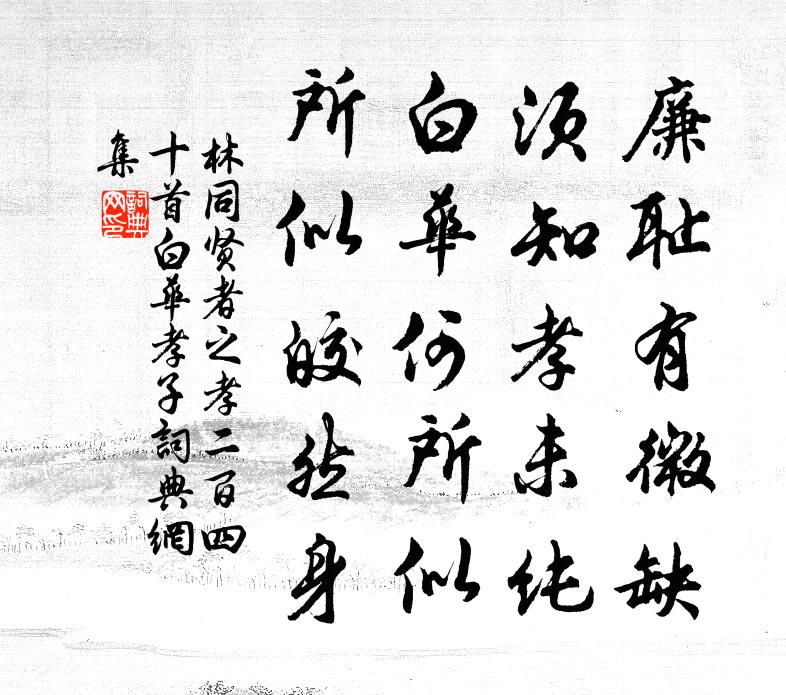 廉耻有微缺
须知孝未纯
白華何所似
所似皎然身
林同贤者之孝二百四
十首白華孝子詞典網
集
詞典
网印